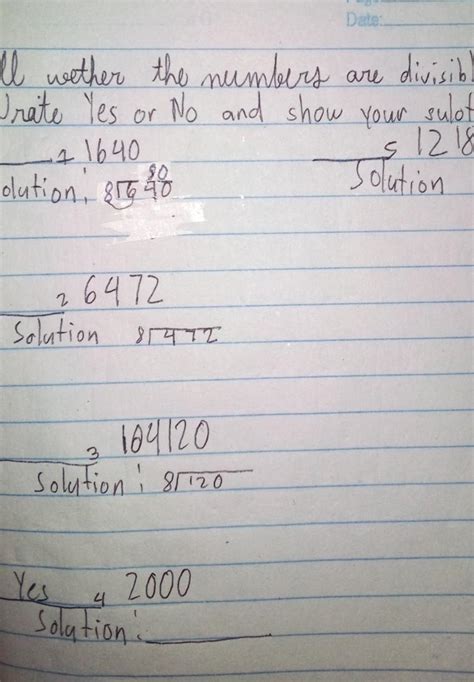 Date:
ll wether the numbers are divisibl
rate Yes or No and show your sulot
1 1640
olution: 8 640 80
5 1218
Solution
2 6472
Solution 8 472
3 104120
Solution: 8 120
Yes 4 2000
Solution: